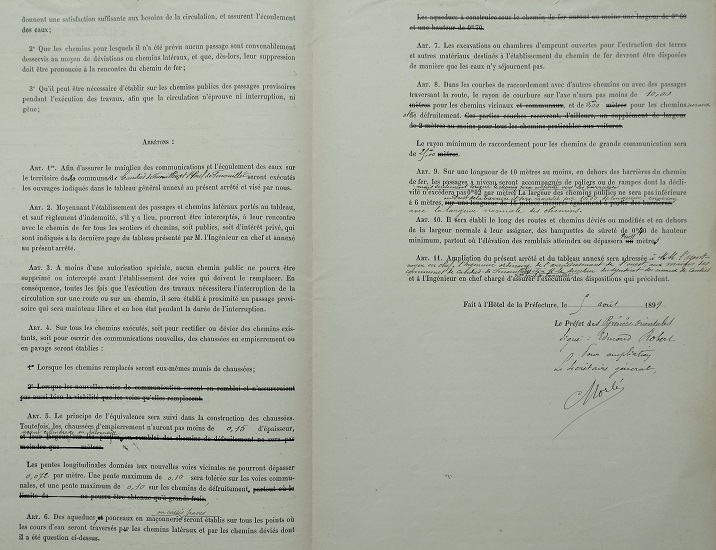 donnent une satisfaction suffisante aux besoins de la circulation, et assurent l'écoulement
des eaux;
2° Que les chemins pour lesquels il n'a été prévu aucun passage sont convenablement
desservis au moyen de déviations ou chemins latéraux, et que, dès-lors, leur suppression
doit être prononcée à la rencontre du chemin de fer;
3° Qu'il peut être nécessaire d'établir sur les chemins publics des passages provisoires
pendant l'exécution des travaux, afin que la circulation n'éprouve ni interruption, ni
gêne;
ARRÊTONS :
ART. 1er. Afin d'assurer le maintien des communications et l'écoulement des eaux sur
le territoire des communes de seront exécutés
les ouvrages indiqués dans le tableau général annexé au présent arrêté et visé par nous.
ART. 2. Moyennant l'établissement des passages et chemins latéraux portés au tableau,
et sauf règlement d'indemnité, s'il y a lieu, pourront être interceptés, à leur rencontre
avec le chemin de fer tous les sentiers et chemins, soit publics, soit d'intérêt privé, qui
sont indiqués à la dernière page du tableau présenté par M. l'Ingénieur en chef et annexé
au présent arrêté.
ART. 3. A moins d'une autorisation spéciale, aucun chemin public ne pourra être
supprimé ou intercepté avant l'établissement des voies qui doivent le remplacer. En
conséquence, toutes les fois que l'exécution des travaux nécessitera l'interruption de la
circulation sur une route ou sur un chemin, il sera établi à proximité un passage provi-
soire qui sera maintenu libre et en bon état pendant la durée de l'interruption.
ART. 4. Sur tous les chemins exécutés, soit pour rectifier ou dévier des chemins exis-
tants, soit pour ouvrir des communications nouvelles, des chaussées en empierrement ou
en pavage seront établies :
1° Lorsque les chemins remplacés seront eux-mêmes munis de chaussées;
2° Lorsque les nouvelles voies de communication seront en remblai et n'assureraient
pas aussi bien la viabilité que les voies qu'elles remplacent.
ART. 5. Le principe de l'équivalence sera suivi dans la construction des chaussées.
Toutefois, les chaussées d'empierrement n'auront pas moins de 0,15 d'épaisseur,
remblai des chemins de défruitement ne sera pas
moindre que mètres.
Les pentes longitudinales données aux nouvelles voies vicinales ne pourront dépasser
0,072 par mètre. Une pente maximum de 0,10 sera tolérée sur les voies commu-
nales, et une pente maximum de 0,10 sur les chemins de défruitement, partout où la
limite de ne pourra être obtenue qu'à grands frais.
ART. 6. Des aqueducs et ponceaux en maçonnerie seront établis sur tous les points où
les cours d'eau seront traversés par les chemins latéraux et par les chemins déviés dont
il a été question ci-dessus.
Les aqueducs à construire sous le chemin de fer auront au moins une largeur de 0m60
et une hauteur de 0m70.
ART. 7. Les excavations ou chambres d'emprunt ouvertes pour l'extraction des terres
et autres matériaux destinés à l'établissement du chemin de fer devront être disposées
de manière que les eaux n'y séjournent pas.
ART. 8. Dans les courbes de raccordement avec d'autres chemins ou avec des passages
traversant la route, le rayon de courbure sur l'axe n'aura pas moins de 10,00
mètres pour les chemins vicinaux et communaux, et de 5,00 mètres pour les chemins
de défruitement. Ces parties courbes recevront, d'ailleurs, un supplément de largeur
de 2 mètres au moins pour tous les chemins praticables aux voitures.
Le rayon minimum de raccordement pour les chemins de grande communication sera
de mètres.
ART. 9. Sur une longueur de 10 mètres au moins, en dehors des barrières du chemin
de fer, les passages à niveau seront accompagnés de paliers ou de rampes dont la décli-
vité n'excédera pas 0m02 par mètre. La largeur des chemins publics ne sera pas inférieure
à 6 mètres, sur une longueur de
avec la largeur normale des chemins.
ART. 10. Il sera établi le long des routes et chemins déviés ou modifiés et en dehors
de la largeur normale à leur assigner, des banquettes de sûreté de 0m40 de hauteur
minimum, partout où l'élévation des remblais atteindra ou dépassera mètres.
ART. 11. Ampliation du présent arrêté et du tableau annexé sera adressée à
et à l'Ingénieur en chef chargé d'assurer l'exécution des dispositions qui précèdent.
Fait à l'Hôtel de la Préfecture, le 5 août 1899
Le Préfet des Pyrénées-Orientales
Signé : Edmond Robert
Pour ampliation
Le Secrétaire général,